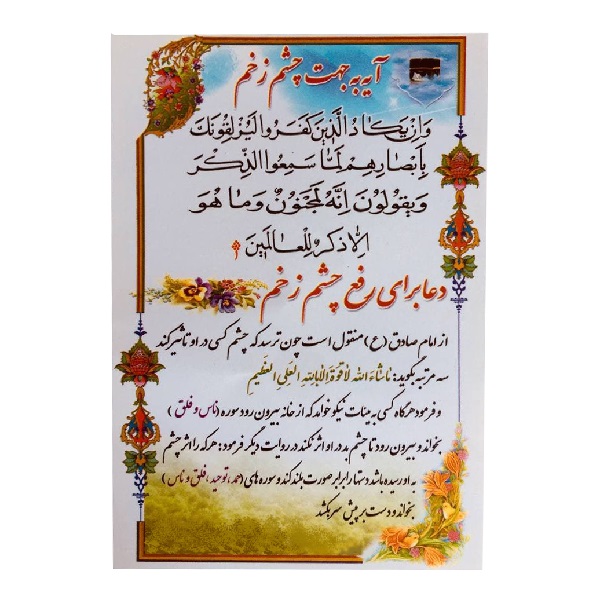 آیه به جهت چشم زخم
وَاِنْ یَکادُ الَّذینَ کَفَروُا لَیُزْلِقوُنَکَ
بِاَبْصارِهِمْ لَمَّا سَمِعوُا الذِّکْرَ
وَیَقوُلوُنَ اِنَّهُ لَمَجْنوُنٌ وَما هُوَ
اِلاّ ذِکْرٌ لِلْعالَمینَ
دعا برای رفع چشم زخم
از امام صادق (ع) منقول است چون ترسد که چشم کسی در او تأثیر کند
سه مرتبه بگوید: ماشاءَ الله لاقُوَةَ اِلا بِاللهِ العَلیِ العَظیمِ
و فرمود هرگاه کسی به هیئات نیکو خواهد که از خانه بیرون رود سوره (ناس و فلق)
بخواند و بیرون رود تا چشم بد در او اثر نکند در روایت دیگر فرمود: هر که را اثر چشم
به او رسیده باشد دستها را برابر صورت بلند کند و سوره های (حمد، توحید، فلق و ناس)
بخواند و دست بر پیش سر بکشد